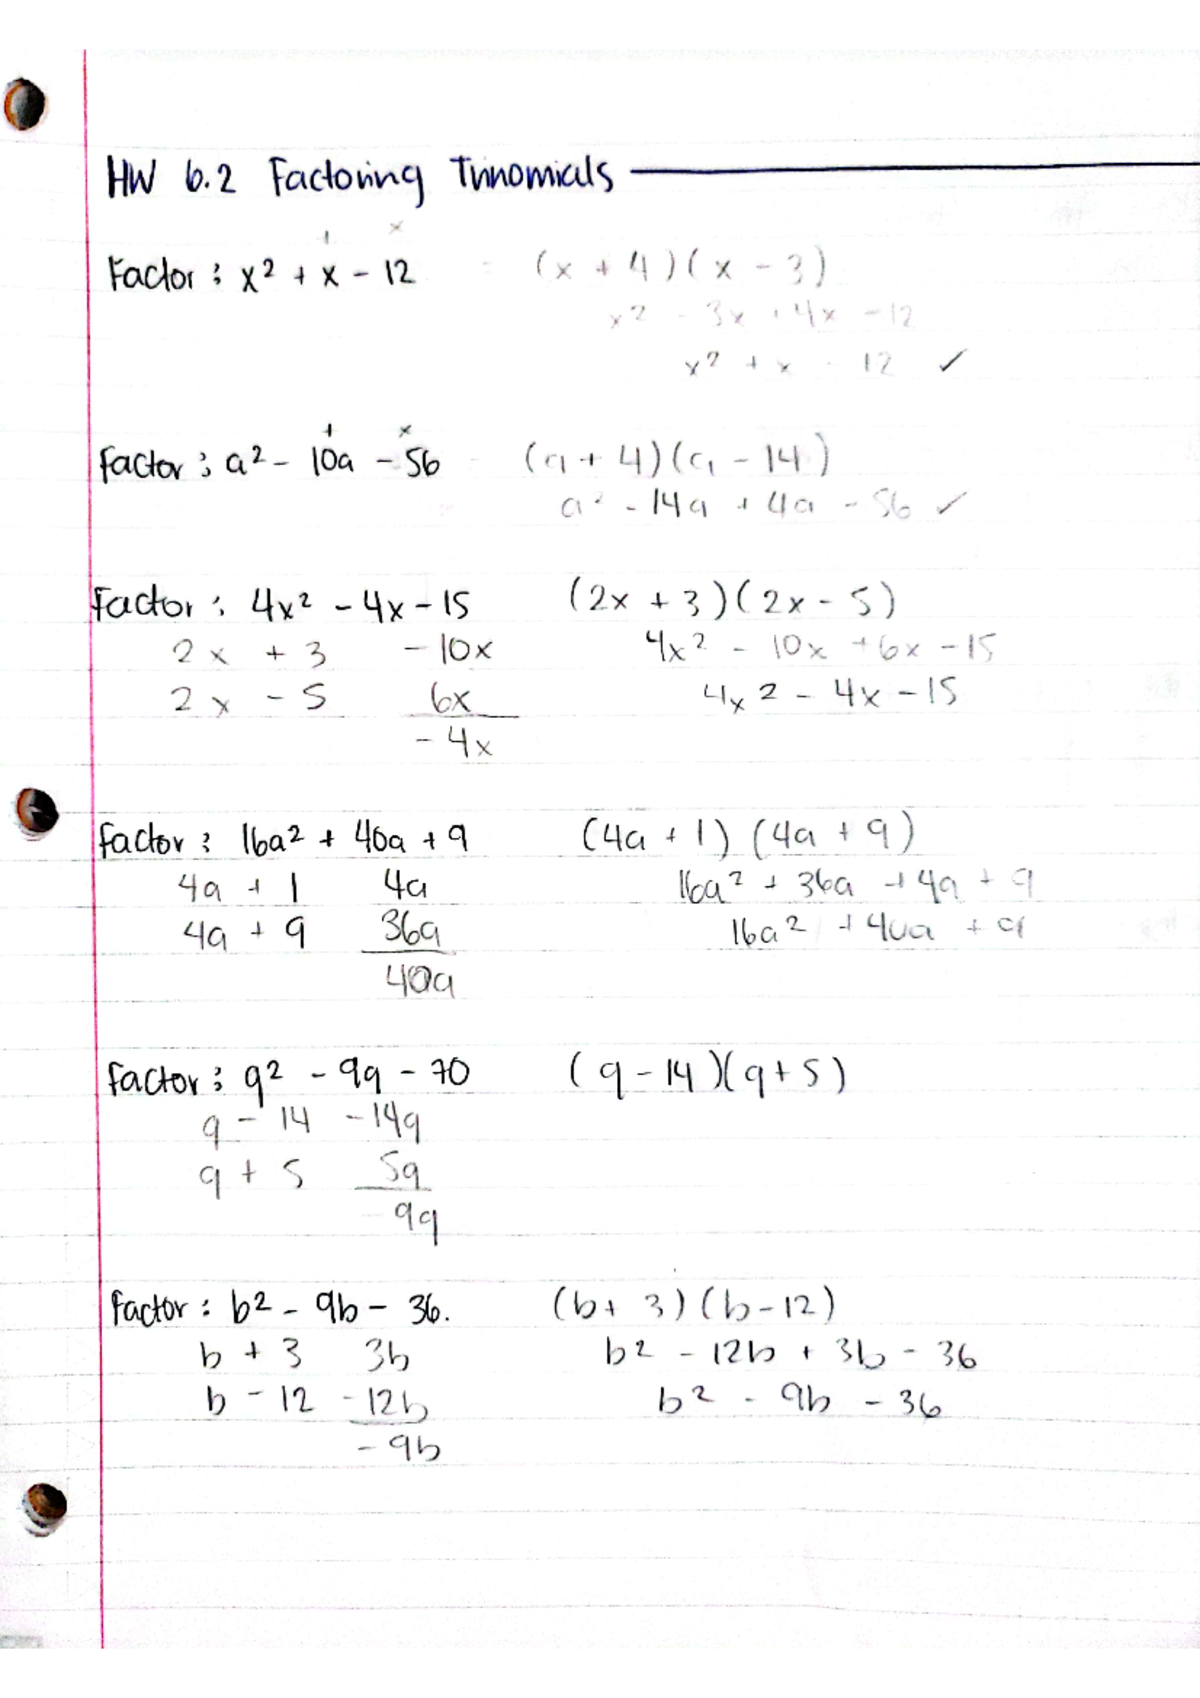 HW 6.2 Factoring Trinomials
+ x
Factor : x² + x - 12 = (x + 4)(x - 3)
x² - 3x + 4x - 12
x² + x - 12 ✓
+ x
Factor : a² - 10a - 56 = (a + 4)(a - 14)
a² - 14a + 4a - 56 ✓
Factor : 4x² - 4x - 15 (2x + 3)(2x - 5)
2x + 3 - 10x 4x² - 10x + 6x - 15
2x - 5 6x 4x² - 4x - 15
- 4x
Factor : 16a² + 40a + 9 (4a + 1)(4a + 9)
4a + 1 4a 16a² + 36a + 4a + 9
4a + 9 36a 16a² + 40a + 9
40a
Factor : q² - 9q - 70 (q - 14)(q + 5)
q - 14 - 14q
q + 5 5q
- 9q
Factor : b² - 9b - 36. (b + 3)(b - 12)
b + 3 3b b² - 12b + 3b - 36
b - 12 - 12b b² - 9b - 36
- 9b